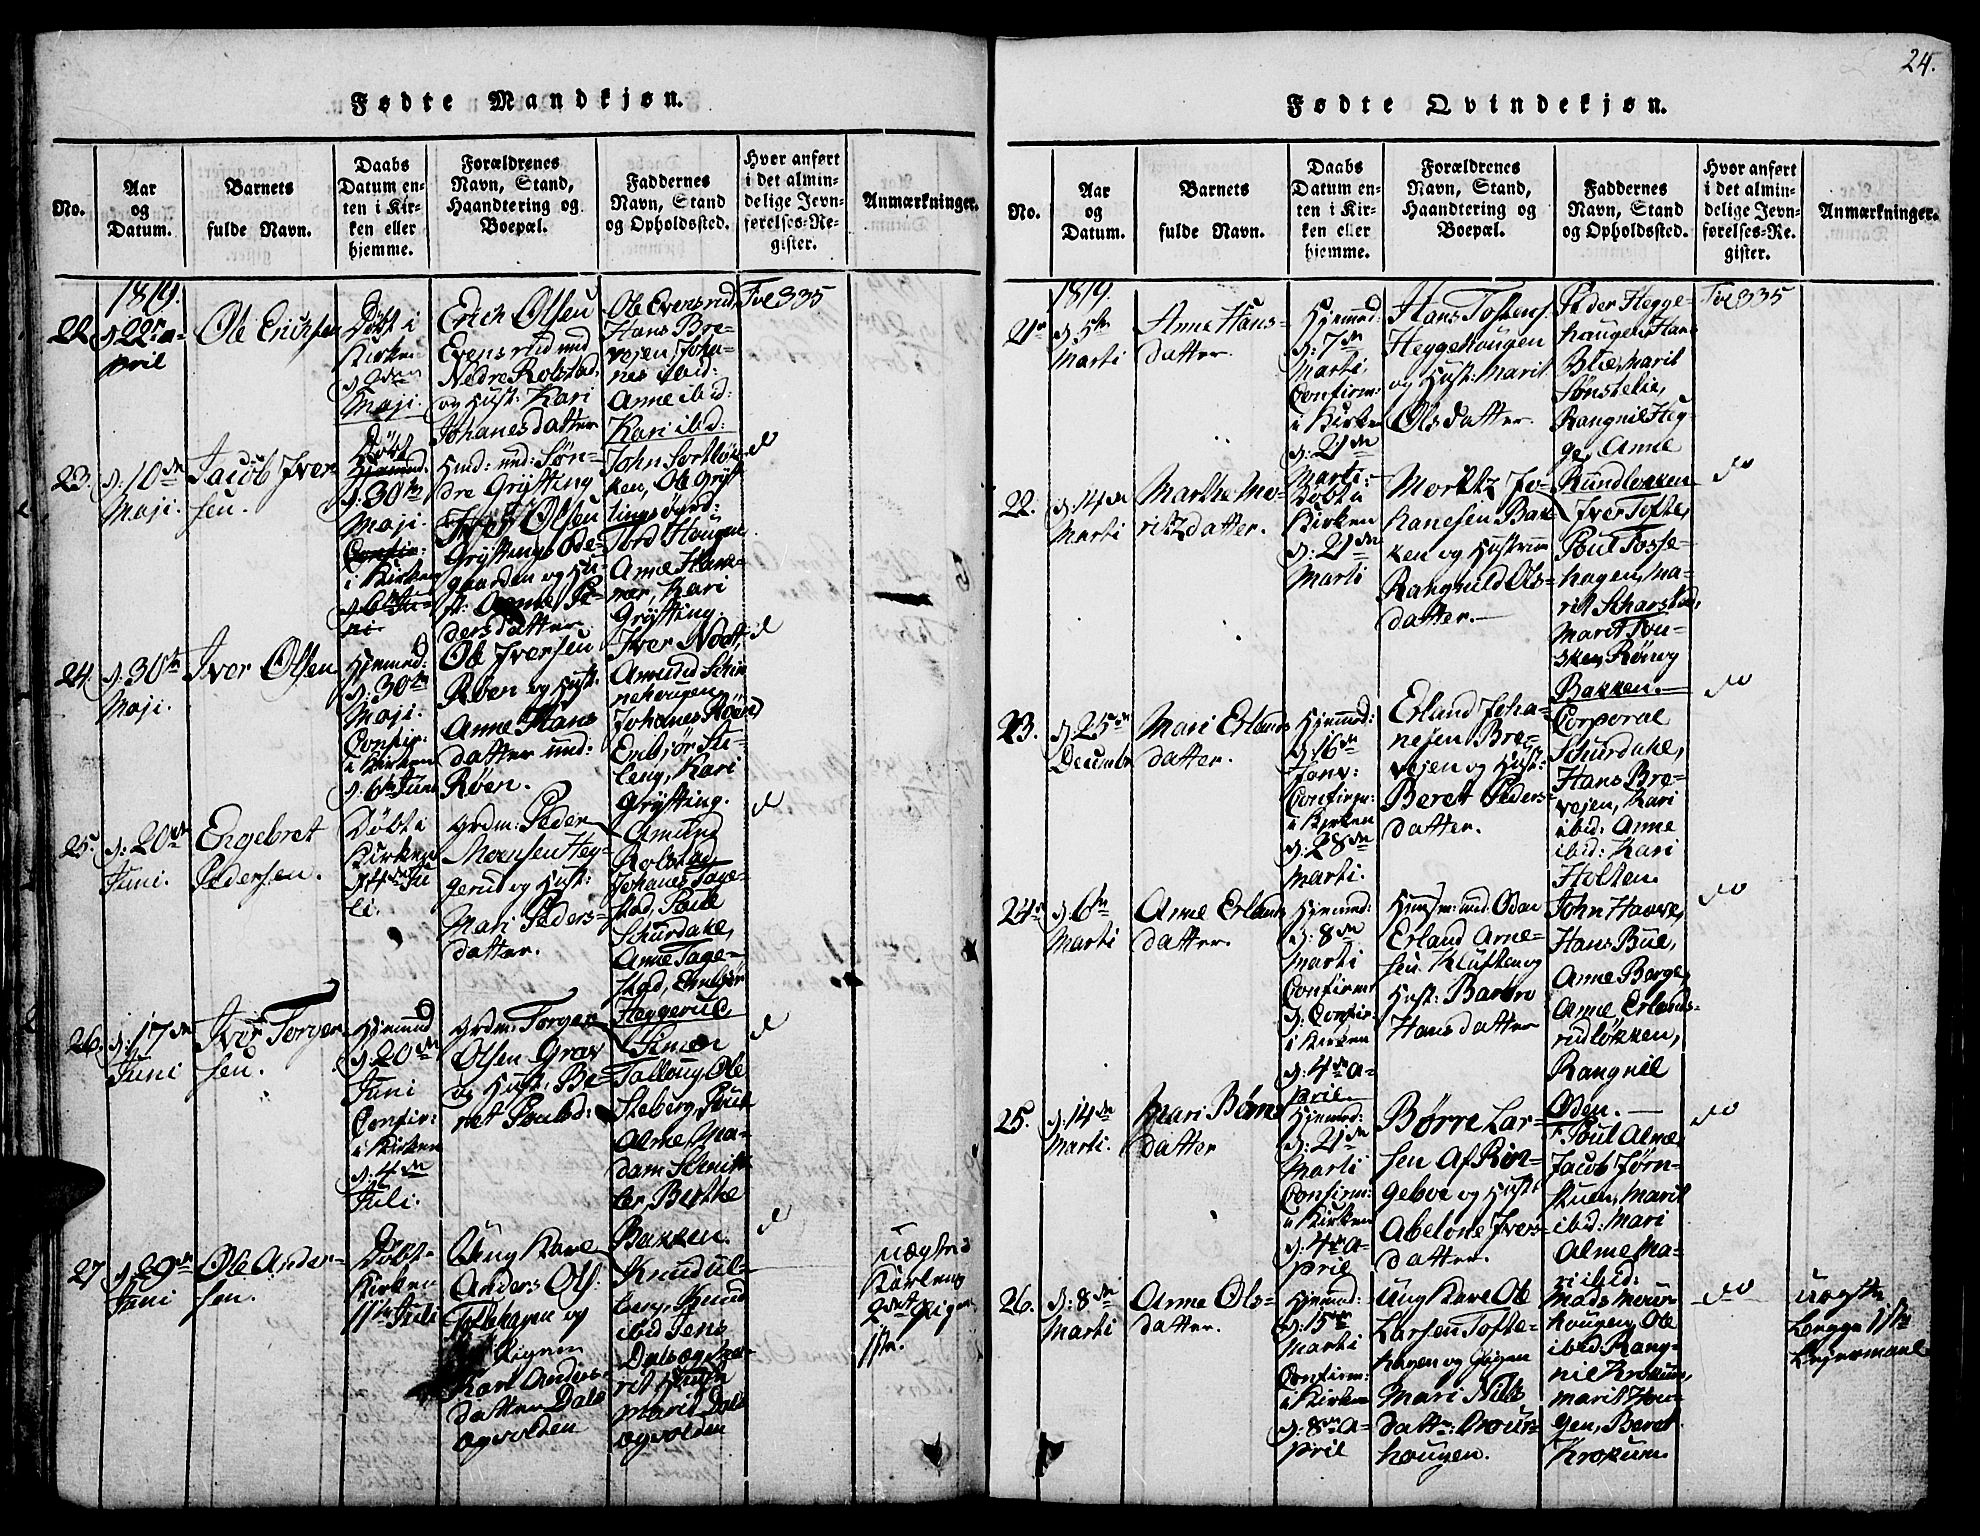 24.
Fødte Mandkjøn.
No.
Aar
og
Datum.
Barnets
fulde Navn.
Daabs
Datum en-
ten i Kir-
ken eller
hjemme.
Forældrenes
Navn, Stand,
Haandtering og
Boepæl.
Faddernes
Navn, Stand
og Opholdssted.
Hvor anført
i det almin-
delige Jevn-
førelses-Re-
gister.
Anmærkninger.
1819.
22.
d: 22n a-
pril
Ole Erichsen
Døbt i
Kirken
d 2den
Maji.
Erich Olsen
Evensrud und
Nedre Rolstad,
og Hust: Kari
Johanesdatter
Ole Evensrud,
Hans Bre-
vejen, Joha-
nes ibid:
Anne ibid:
Kari ibid:
Fol 335
23.
d: 10de
Maji.
Jacob Iver
sen.
Døbt
Hjemmed:
d: 30te
Maji.
Confir:
i Kirken
d 6te Ju-
ni
Husm: und: Søn-
dre Grytting
Iver Olsen
Gryttings Øde-
gaarden og Hu-
st: Anne Pe-
dersdatter
John Sortløk-
ken, Ole Gryt-
tingsøyrd:
Tord Haugen,
Anne Have-
mær, Kari
Grytting.
d
24.
d: 30te
Maji.
Iver Olsen
Hjemmed:
d: 30te
Maji.
Confir:
i Kirken
d: 6te Juni
Ole Iversen
Røen og Hust:
Anne Hans
datter und:
Røen.
Iver Nodt,
Amund Schin
nehougen,
Johanes Røen,
Enbjør Ste-
leng, Kari
Grytting.
d
25.
d: 20de
Juni.
Engebret
Pedersen.
Døbt i
Kirken
d 4de Ju
li.
Grdm: Peder
Moensen Heg-
gerud og Hust:
Mari Peders-
datter.
Amund
Rolstad
Johanes Tage-
stad, Poul
Schurdahl,
Anne Tage-
stad, Embjør
Heggerud,
d
26.
d: 17de
Juni
Iver Torger
sen.
Hjemmed
d: 20de
Juni
Confir:
i Kirken
d: 4de
Juli.
Grdm: Torger
Olsen Grav
og Hust: Be-
ret Poulsd:
Simen
Talloug, Ole
Steberg, Poul
Alme, Ma-
dam Schmitt
ler, Berthe
Bakken.
d
27
d 29de
Juni
Ole Ander-
sen.
Døbt
Kirken
11te Juli
Ung Karl
Anders Ols:
Toftehagen og
Pigen
Kari Anders-
datter Dals
Agvolden
Knud Ul-
berg, Knud
ibid Jens
Dals og Ma-
rit
Marit Dals
Agvolden
d
Uægte
Karlens
2det Pigens
1ste.
Fødte Qvindekjøn.
No.
Aar
og
Datum.
Barnets
fulde Navn.
Daabs
Datum en-
ten i Kir-
ken eller
hjemme.
Forældrenes
Navn, Stand,
Haandtering og
Boepæl.
Faddernes
Navn, Stand
og Opholdssted.
Hvor anført
i det almin-
delige Jevn-
førelses-Re-
gister.
Anmærkninger.
1819.
21n
d 5te
Marti
Anne Hans-
datter.
Hjemmed:
d: 7de
Marti,
Confirm:
i Kirken
d: 21de
Marti.
Hans Tostens:
Heggehougen
og Hust: Marit
Olsdatter.
Peder Hegge-
haugen, Hans
Blie, Marit
Sønstelie,
Rangnil Heg-
ge, Anne
Rundløkken
Fol 335
22.
d: 14de
Marti
Marthe Mo-
ritzdatter.
Døbt i
Kirken
d: 21de
Marti
Moritz Jo-
hanesen Bak-
ken og Hustrue
Rangnild Ols-
datter.
Iver Tofte,
Poul Fosse-
hagen, Ma-
rit Scharstad,
Marit Tou-
sken, Rønog
Bakken.
do
23.
d: 25de
Decembr
Mari Erlands
datter.
Hjemmed:
d: 16de
Janv:
Confirm:
i Kirken
d: 28de
Marti.
Erland Joha-
nesen Bre-
vejen og Hust:
Beret Peders-
datter.
Corporal
Schurdahl,
Hans Bre-
vejen, Kari
ibid: Anne
ibid: Kari
Holten.
do
24n
d: 6te
Marti
Anne Erlands
datter.
Hjemmed:
d: 8de
Marti
Confirm
d: Confir:
i Kirken
d: 4de A-
pril
Husm: und: Oden
Erland Arne-
sen Kluften og
Hust: Barbro
Hansdatter
John Haave,
Hans Bue,
Anne Borge,
Anne Erlands-
rudløkken,
Rangnil
Oden.
do
25.
d: 14de
Marti.
Mari Børres
datter
Hjemmed:
d: 21de
Marti
Confirm:
i Kirken
d: 4de A-
pril
Børre Lar-
sen Af Rin-
geboe og Hust:
Abelone Ivers-
datter.
Poul Alme,
Jacob Jørn-
stuen, Marit
ibid: Mari
Alme Ma-
ri ibid:
do
26.
d: 8de
Marti
Anne Ols-
datter.
Hjemmed:
d: 15de
Marti
Confirm:
i Kirken
d: 8de A-
pril
Ung Karl Ole
Larsen Tofte-
hagen og Pigen
Mari Niels
datter Mour-
hougen.
Mads Mour-
hougen, Ole
ibid Rang-
nil Krokum,
Marit Hou-
gen, Beret
Krokum
do
Uægte
begge 1ste
Lejermaal